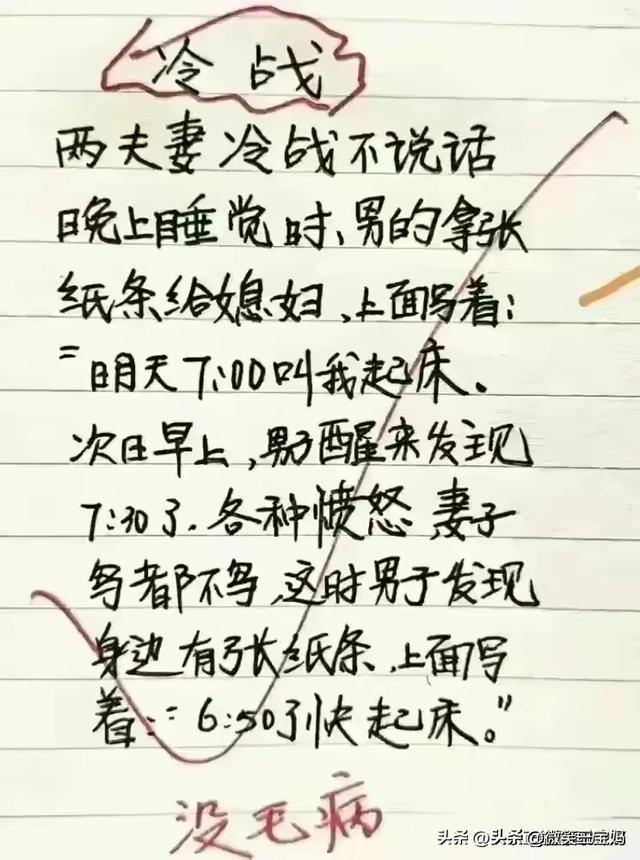 冷战
两夫妻冷战不说话
晚上睡觉时、男的拿张
纸条给媳妇、上面写着:
"明天7:00叫我起床、
次日早上,男子醒来发现
7:30了.各种愤怒,妻子
鸟都不鸟,这时男子发现
身边有张纸条、上面写
着:"6:50了快起床。"
没毛病
头条 @头条 @微笑王宝妈